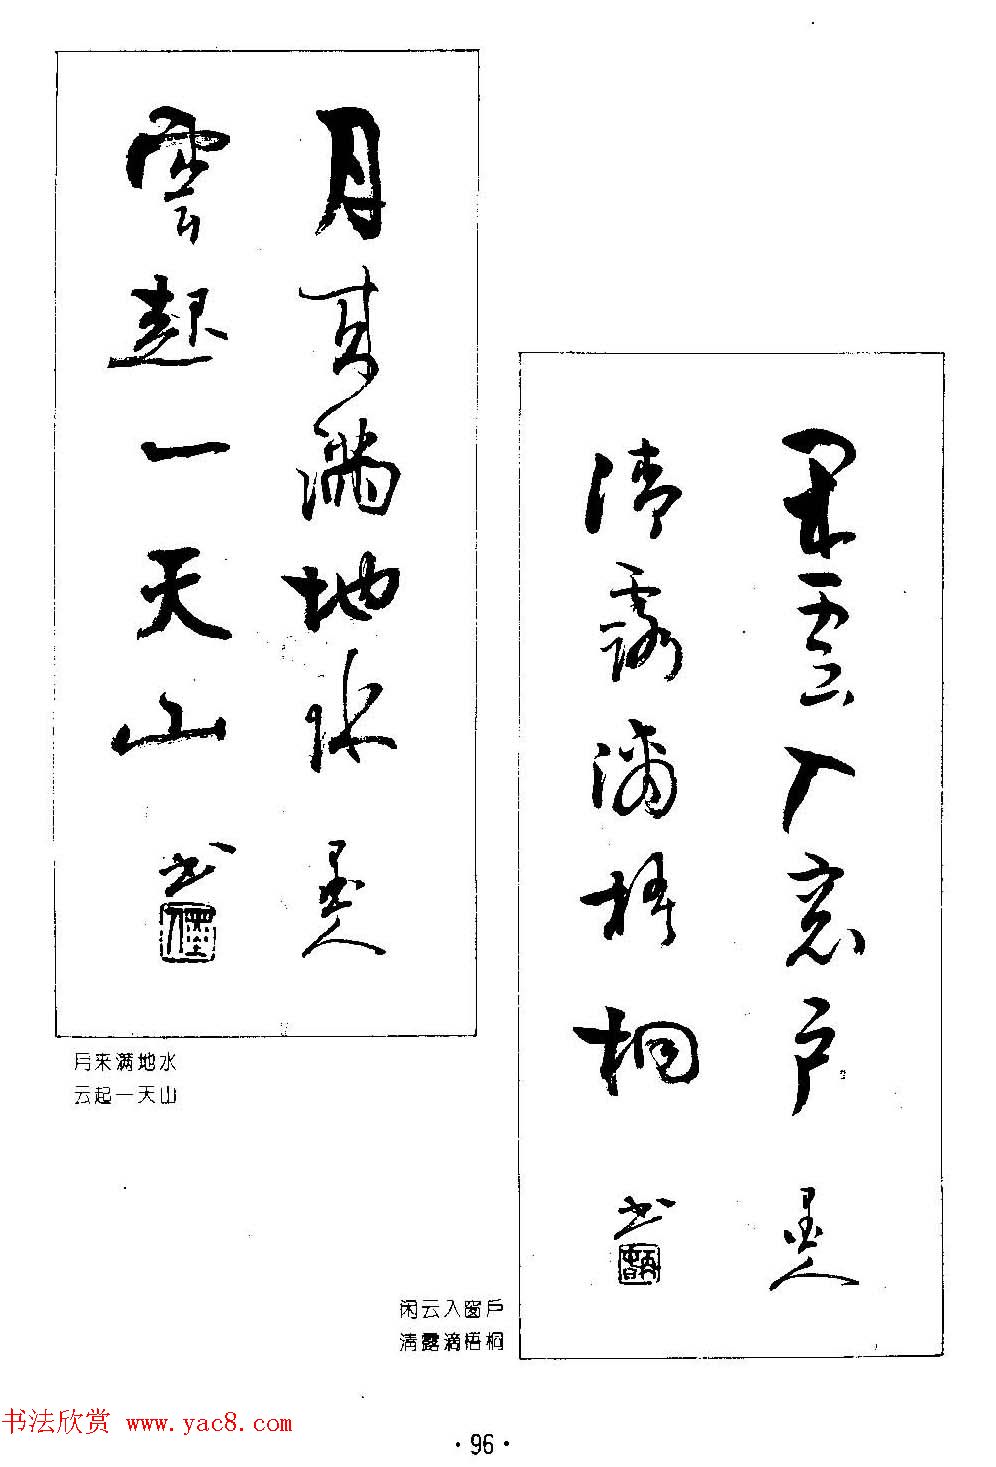 月来满地水
雲起一天山
墨人
书
月来满地水
云起一天山
闲雲入窗户
清露滴梧桐
墨人
书
闲云入窗户
清露滴梧桐
书法欣赏 www.yac8.com
·96·